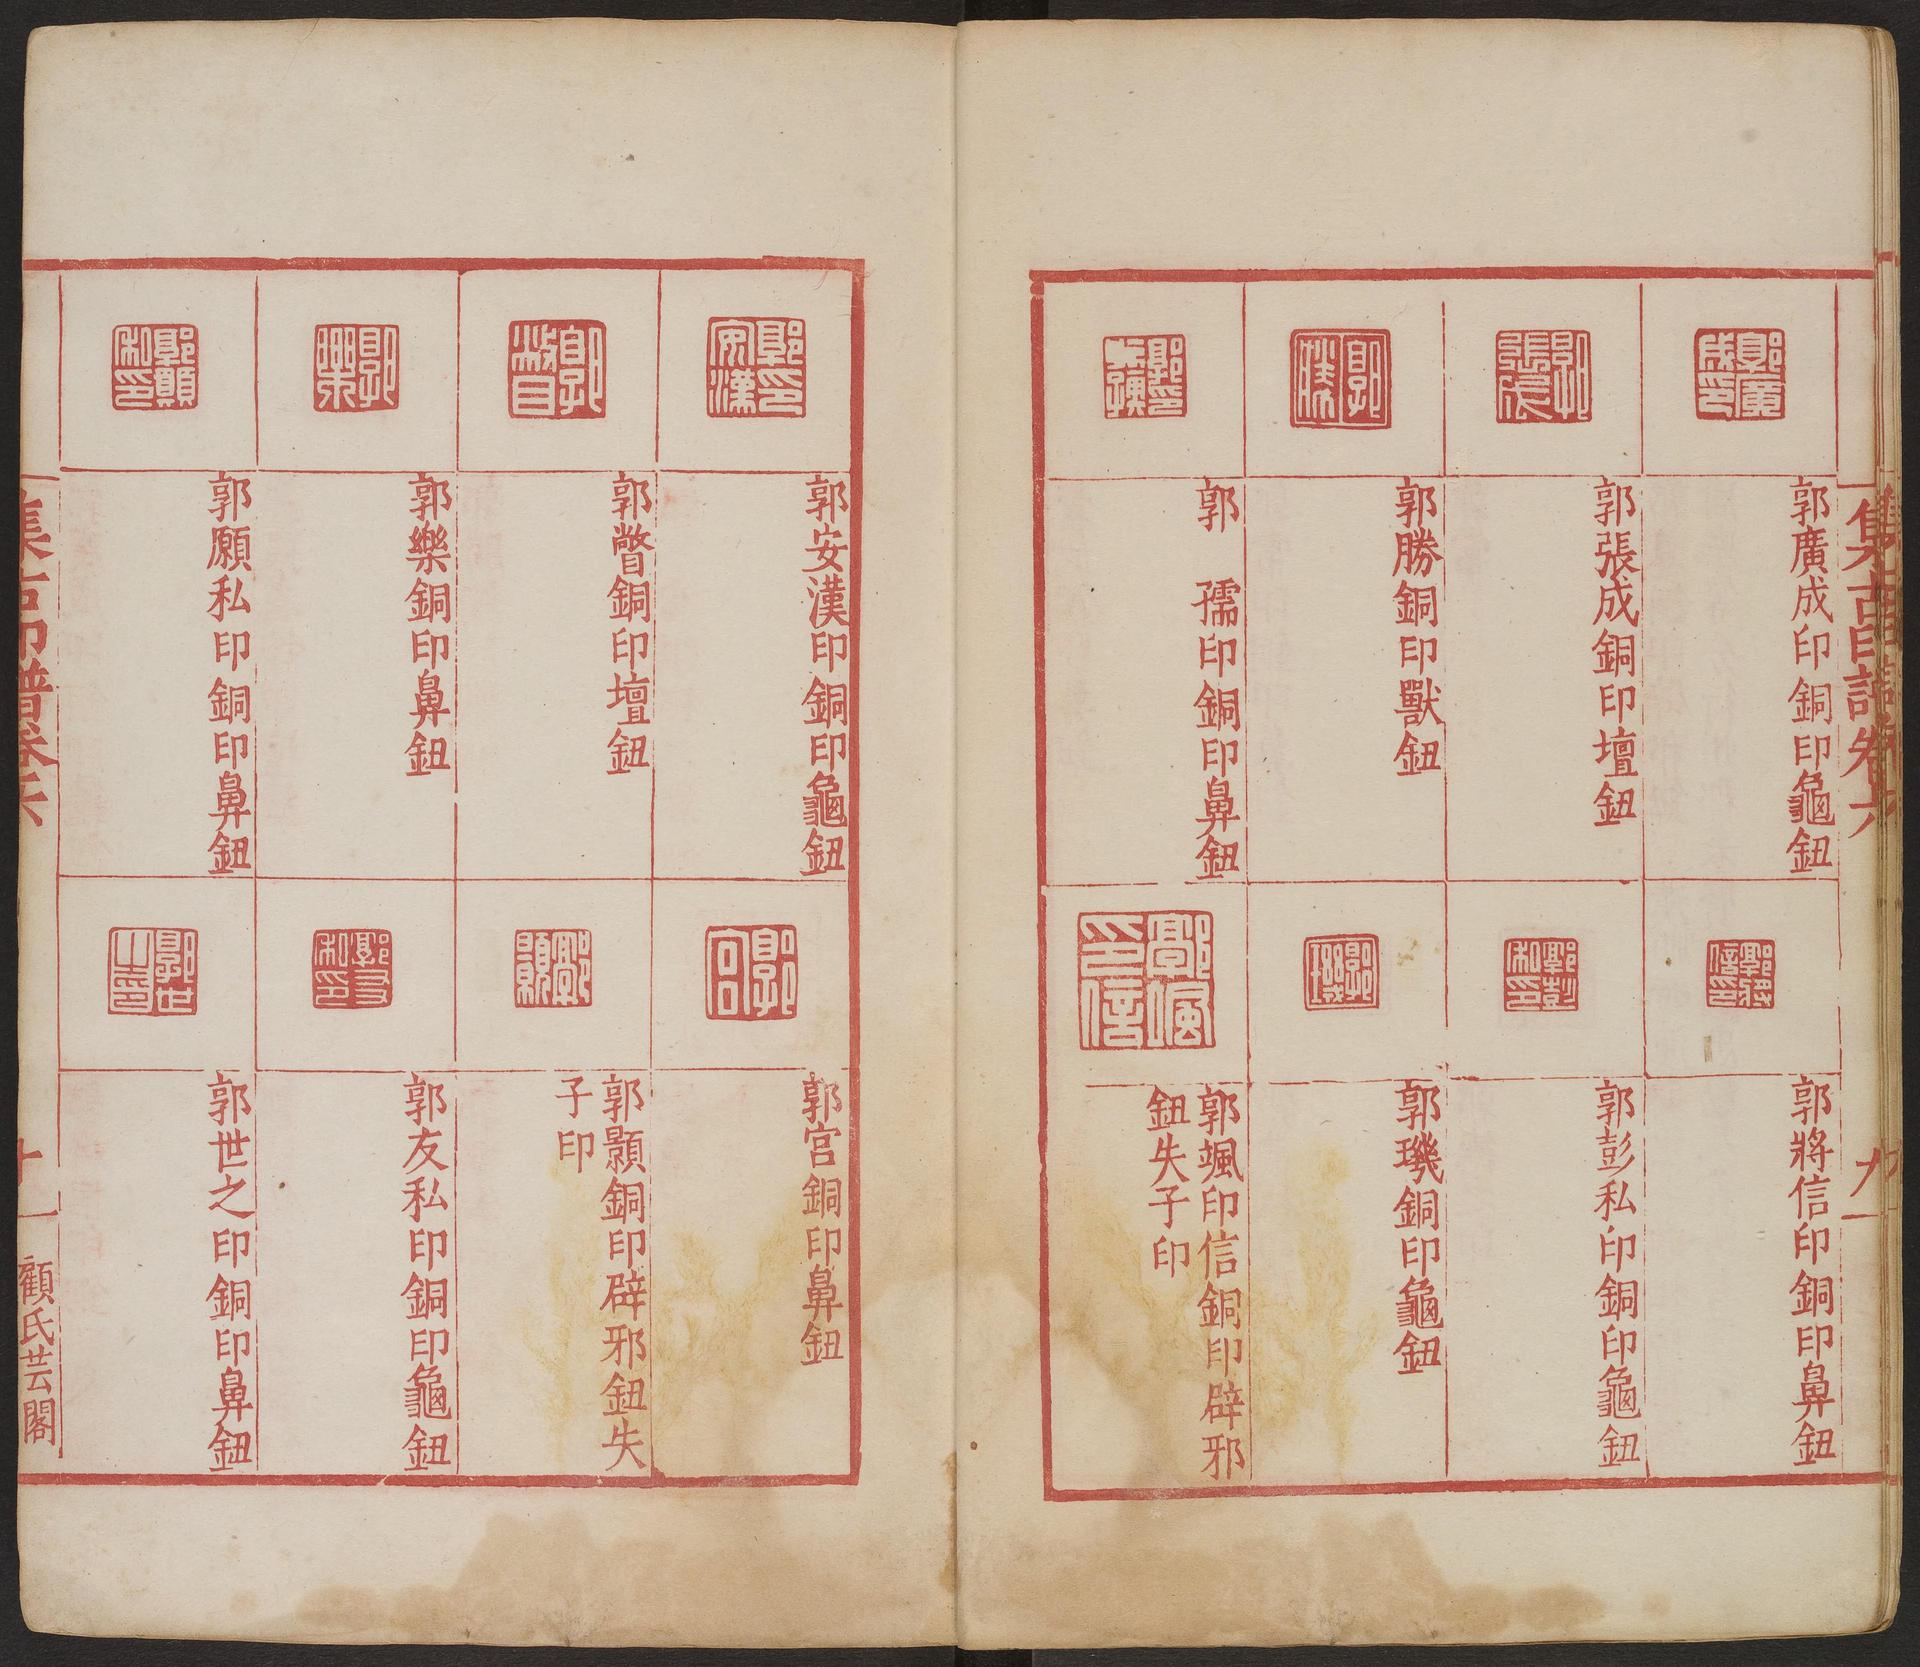 集古印譜卷六
九
郭廣成印銅印龜鈕
郭張成銅印壇鈕
郭勝銅印獸鈕
郭　孺印銅印鼻鈕
郭將信印銅印鼻鈕
郭彭私印銅印龜鈕
郭璣銅印龜鈕
郭颯印信銅印辟邪
鈕失子印
郭安漢印銅印龜鈕
郭瞥銅印壇鈕
郭樂銅印鼻鈕
郭願私印銅印鼻鈕
郭宮銅印鼻鈕
郭顥銅印辟邪鈕失
子印
郭友私印銅印龜鈕
郭世之印銅印鼻鈕
集古印譜卷六
十
顧氏芸閣